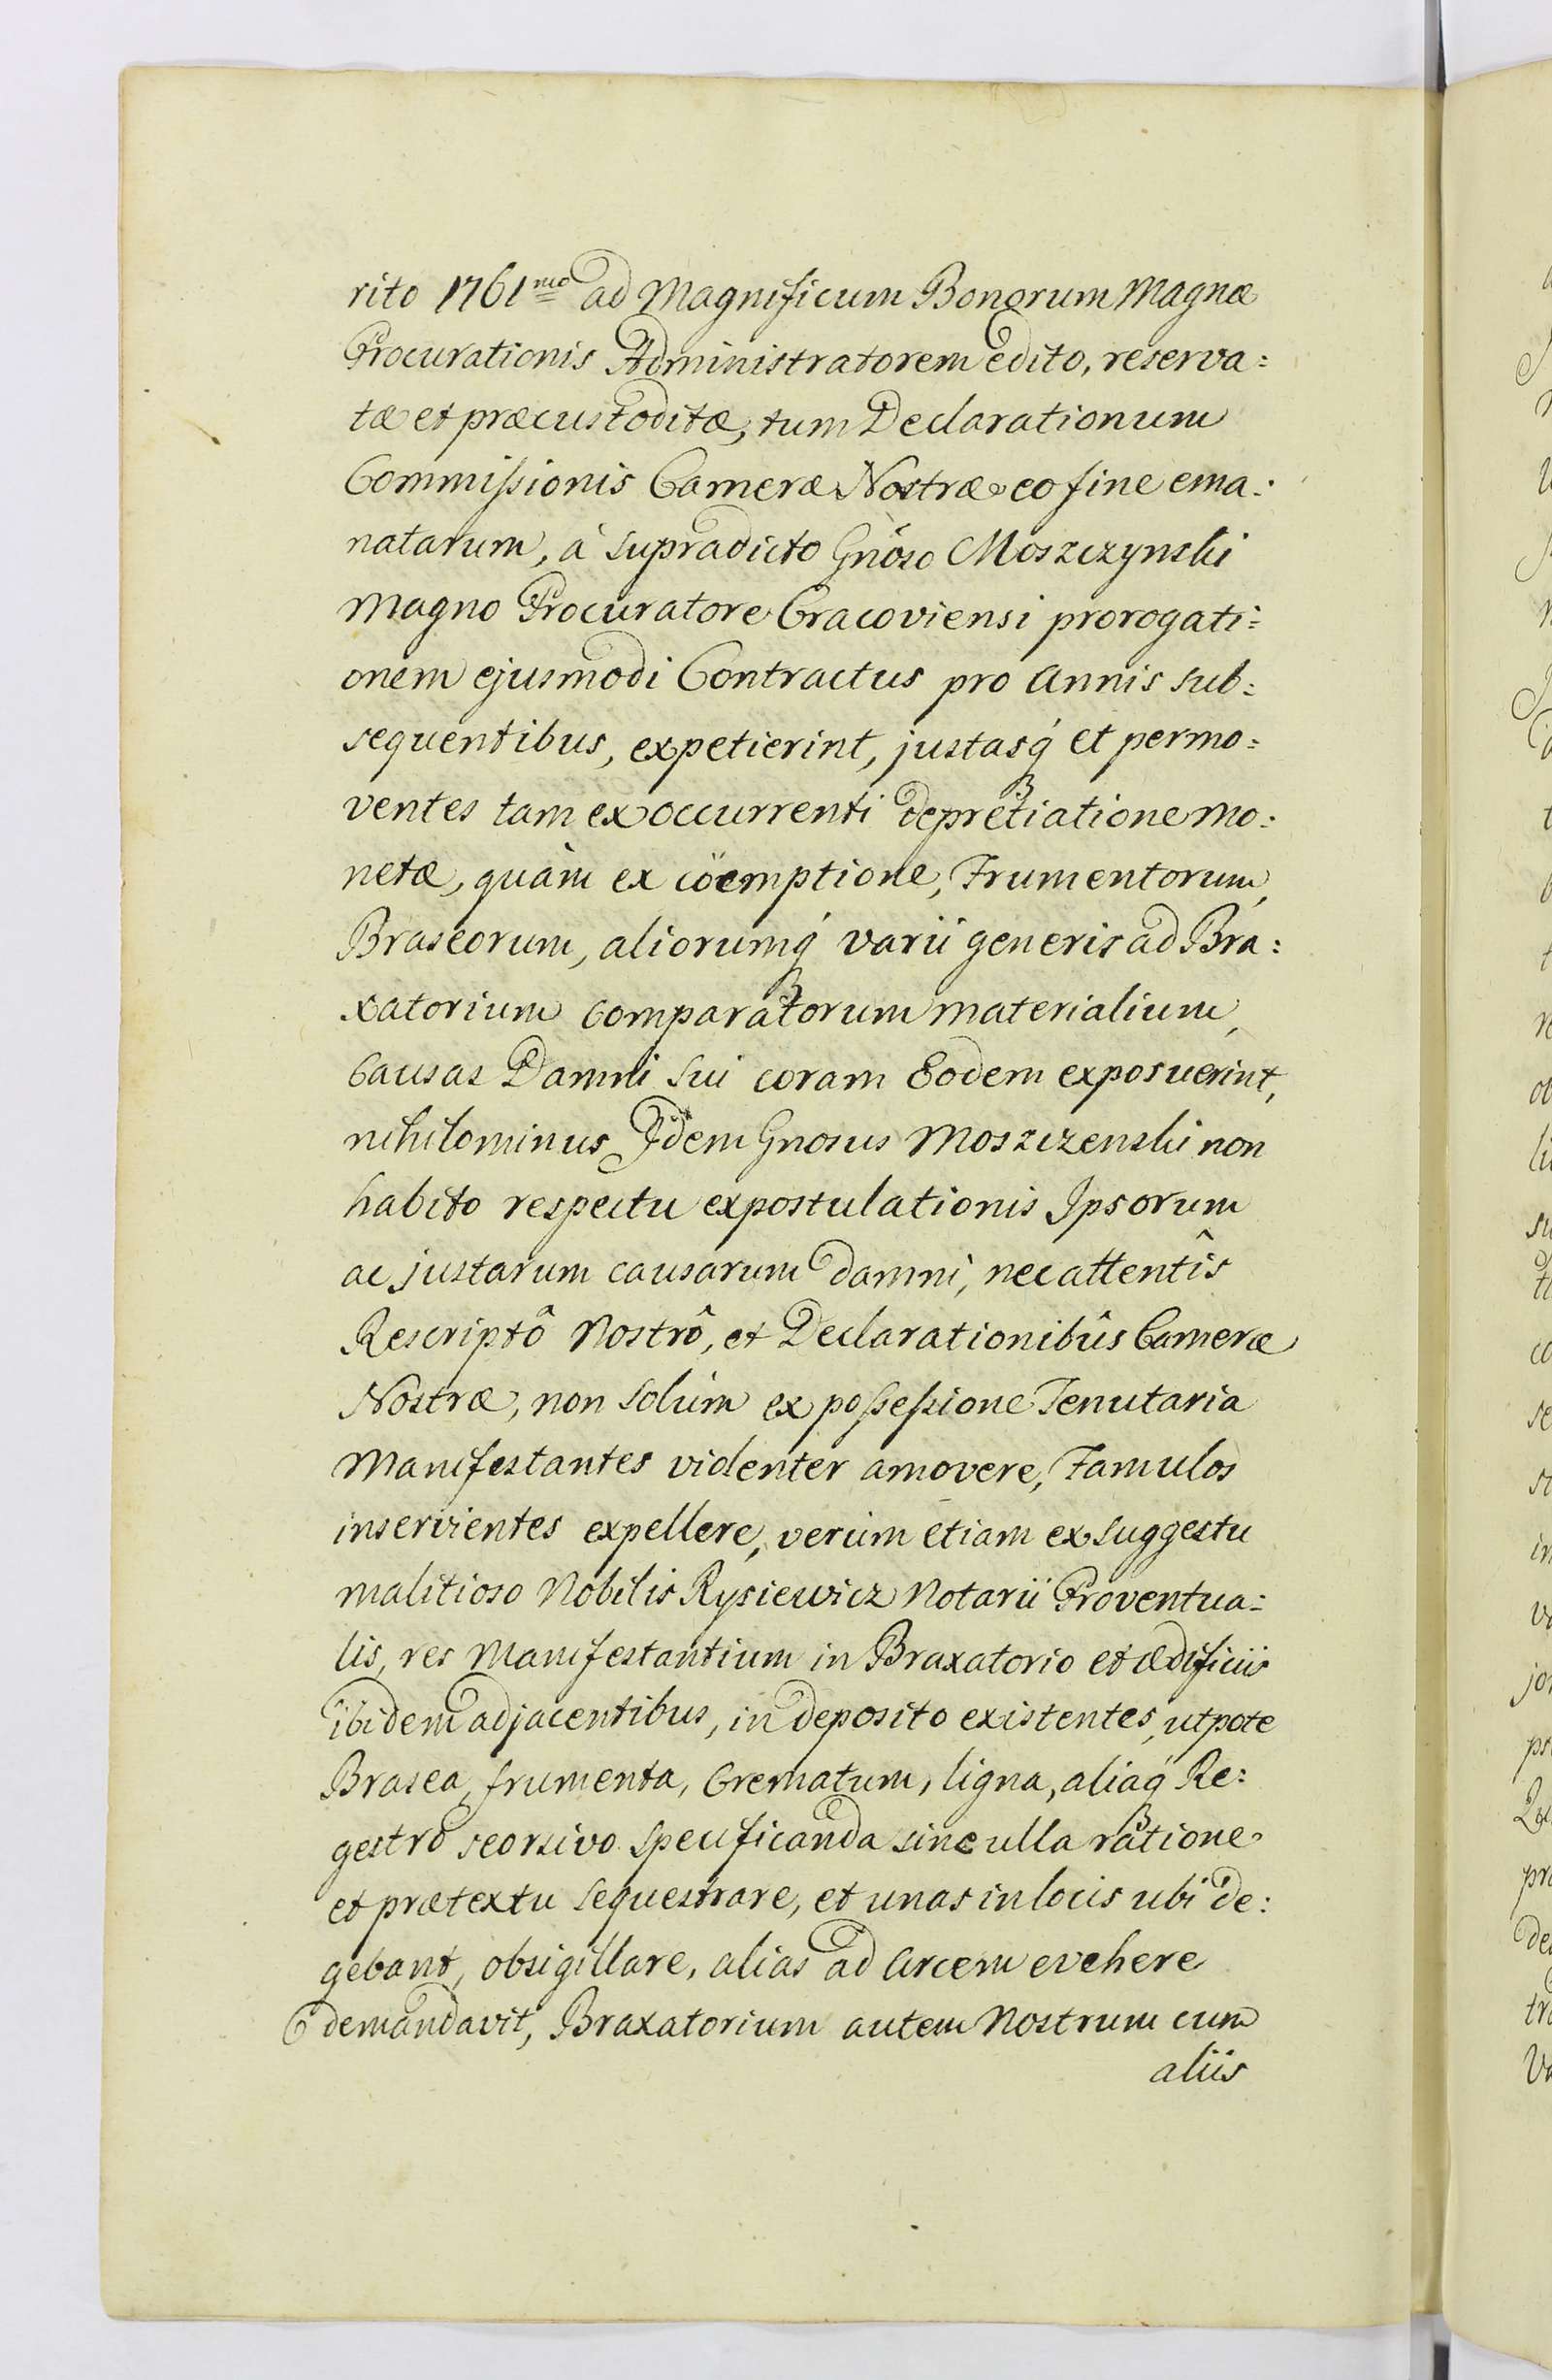 rito 1761mo ad Magnificum Bonorum Magnæ
Procurationis Administratorem edito, reserva=
tæ et præcustoditæ, tum Declarationum
Commißionis Cameræ Nostræ eo fine ema=
natarum, à supradicto Gnoso Moszczynski
Magno Procuratore Cracoviensi prorogati=
onem ejusmodi Contractus pro Annis sub=
sequentibus, expetierint, justasq́ et permo=
ventes tam ex occurrenti depretiatione mo=
netæ, quàm ex coëmptione, Frumentorum,
Braseorum, aliorumq́ varii generis ad Bra=
xatorium comparatorum materialium,
Causas Damni sui coram Eodem exposuerint,
nihilominus Idem Gnosus Moszczenski non
habito respectu expostulationis Ipsorum
ac justarum causarum damni, nec attentîs
Rescriptô Nostrô, et Declarationibûs Cameræ
Nostræ, non solùm ex poßeßione Tenutaria
Manifestantes violenter amovere, Famulos
inservientes expellere, verùm etiam ex suggestu
malitioso Nobilis Rysiewicz Notarii Proventua=
lis, res Manifestantium in Braxatorio et ædificiis
ibidem adjacentibus, in deposito existentes, utpote
Brasea, frumenta, Crematum, ligna, aliaq́ Re=
gestro seorsivo specificanda sine ulla ratione
et prætextu sequestrare, et unas in locis ubi de=
gebant, obsigillare, alias ad Arcem evehere
demandavit, Braxatorium autem Nostrum cum
aliis